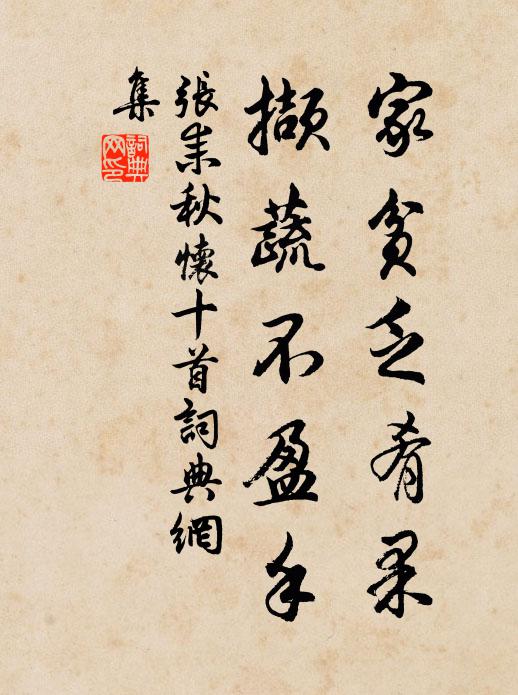 家貧乏肴果
擷蔬不盈手
張耒秋懷十首詞典網
集
詞典
网印